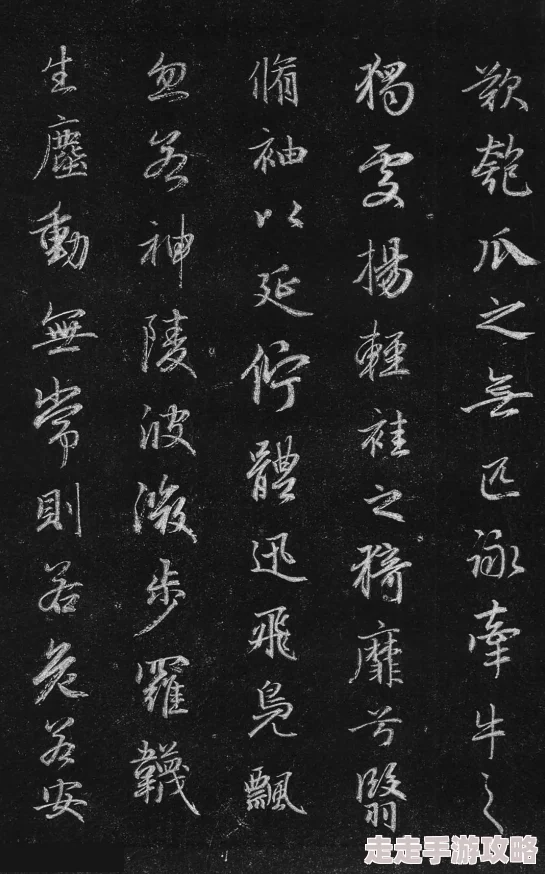 歎匏瓜之無匹詠牽牛之
獨處揚輕袿之猗靡兮翳
脩袖以延佇體迅飛鳧飄
忽若神陵波微步羅韈
生塵動無常則若危若安
走走手游攻略